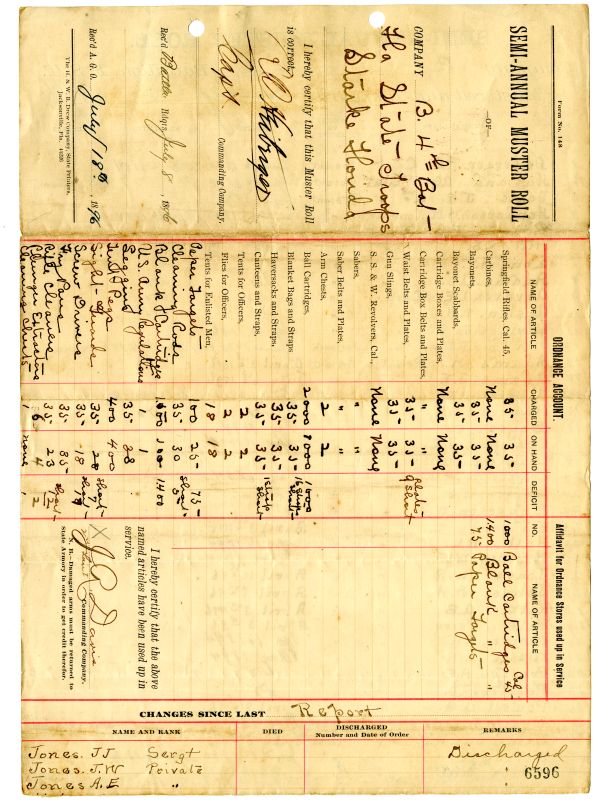 Form No. 148
SEMI-ANNUAL MUSTER ROLL
—OF—
COMPANY B. 4th Bat-
Fla State Troops
Starke Florida
I hereby certify that this Muster Roll
is correct,
Capt.
Commanding Company.
Rec'd Hdqrs. July 8 1896
Rec'd A. G. O. July 18th, 1896
The H. & W. B. Drew Company, State Printers,
Jacksonville, Fla.
ORDNANCE ACCOUNT.
NAME OF ARTICLE CHARGED ON HAND DEFICIT
Springfield Rifles, Cal. 45, 35 35
Carbines, None None
Bayonets, 35- 35-
Bayonet Scabbards, 35- 35-
Cartridge Boxes and Plates, None None
Cartridge Box Belts and Plates, "
Waist Belts and Plates, 35- 35- plates 9 short
Gun Slings, 35- 35-
S. & W. Revolvers, Cal., None None
Sabers, " "
Saber Belts and Plates, " "
Arm Chests, 2 2
Ball Cartridges, 2000 1000 1000
Blanket Bags and Straps 35- 35-
Haversacks and Straps, 35- 35-
Canteens and Straps, 35- 35-
Tents for Officers, 2 2
Flies for Officers, 2 2
Tents for Enlisted Men, 18 18
Paper Targets 100 25- 75-
Cleaning Rods 35 30 short 5
Blank Cartridges 1400
U.S. Army Regulations 1 1
Leggins 35-
Tent Pegs 400 400
Sight Guards 35- 28 short 7
Screw Drivers 35- 18 short
Tin Pans 35- 35-
Rifle Cleaners 35- 23 short 12
Plunger Extractors 6 4 2
Cleaning 1 None 1
Affidavit for Ordnance Stores used up in Service
NO. NAME OF ARTICLE
1000 Ball Cartridges Cal 45-
1400 Blank " "
75 Paper Targets
I hereby certify that the above
named articles have been used up in
service.
X J. R. Davis
Commanding Company.
N. B.—Damaged arms must be returned to
State Armory in order to get credit therefor.
CHANGES SINCE LAST Report
NAME AND RANK DIED DISCHARGED Number and Date of Order REMARKS
Jones. JJ Sergt Discharged
Jones. J.W Private
Jones A.E "
6596